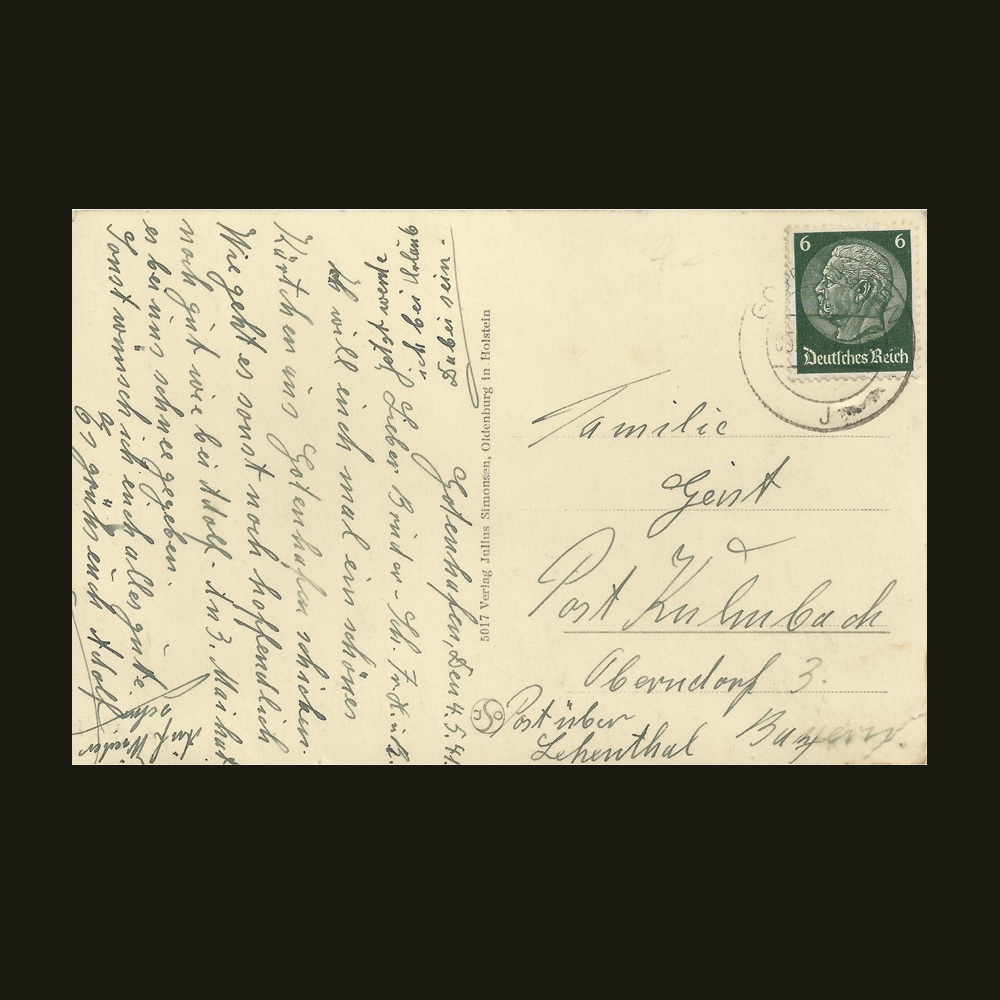 Gotenhafen, Den 4.5.41.
Lieber Bruder
Ich will euch mal ein schönes
Kärtchen aus Gotenhafen schicken.
Wie geht es sonst noch hoffendlich
noch gut wie bei Adolf. Am 3. Mai hat
es bei uns schnee gegeben.
Sonst wünsch ich euch alles gute
Es grüßt euch Adolf
auf Wieder
sehn
bei Urlaub
Dabei sein.
5017 Verlag Julius Simonsen, Oldenburg in Holstein
6 6
Deutsches Reich
Familie
Geist
Post Kulmbach
Oberndorf 3.
Post über
Lehenthal Bayern.